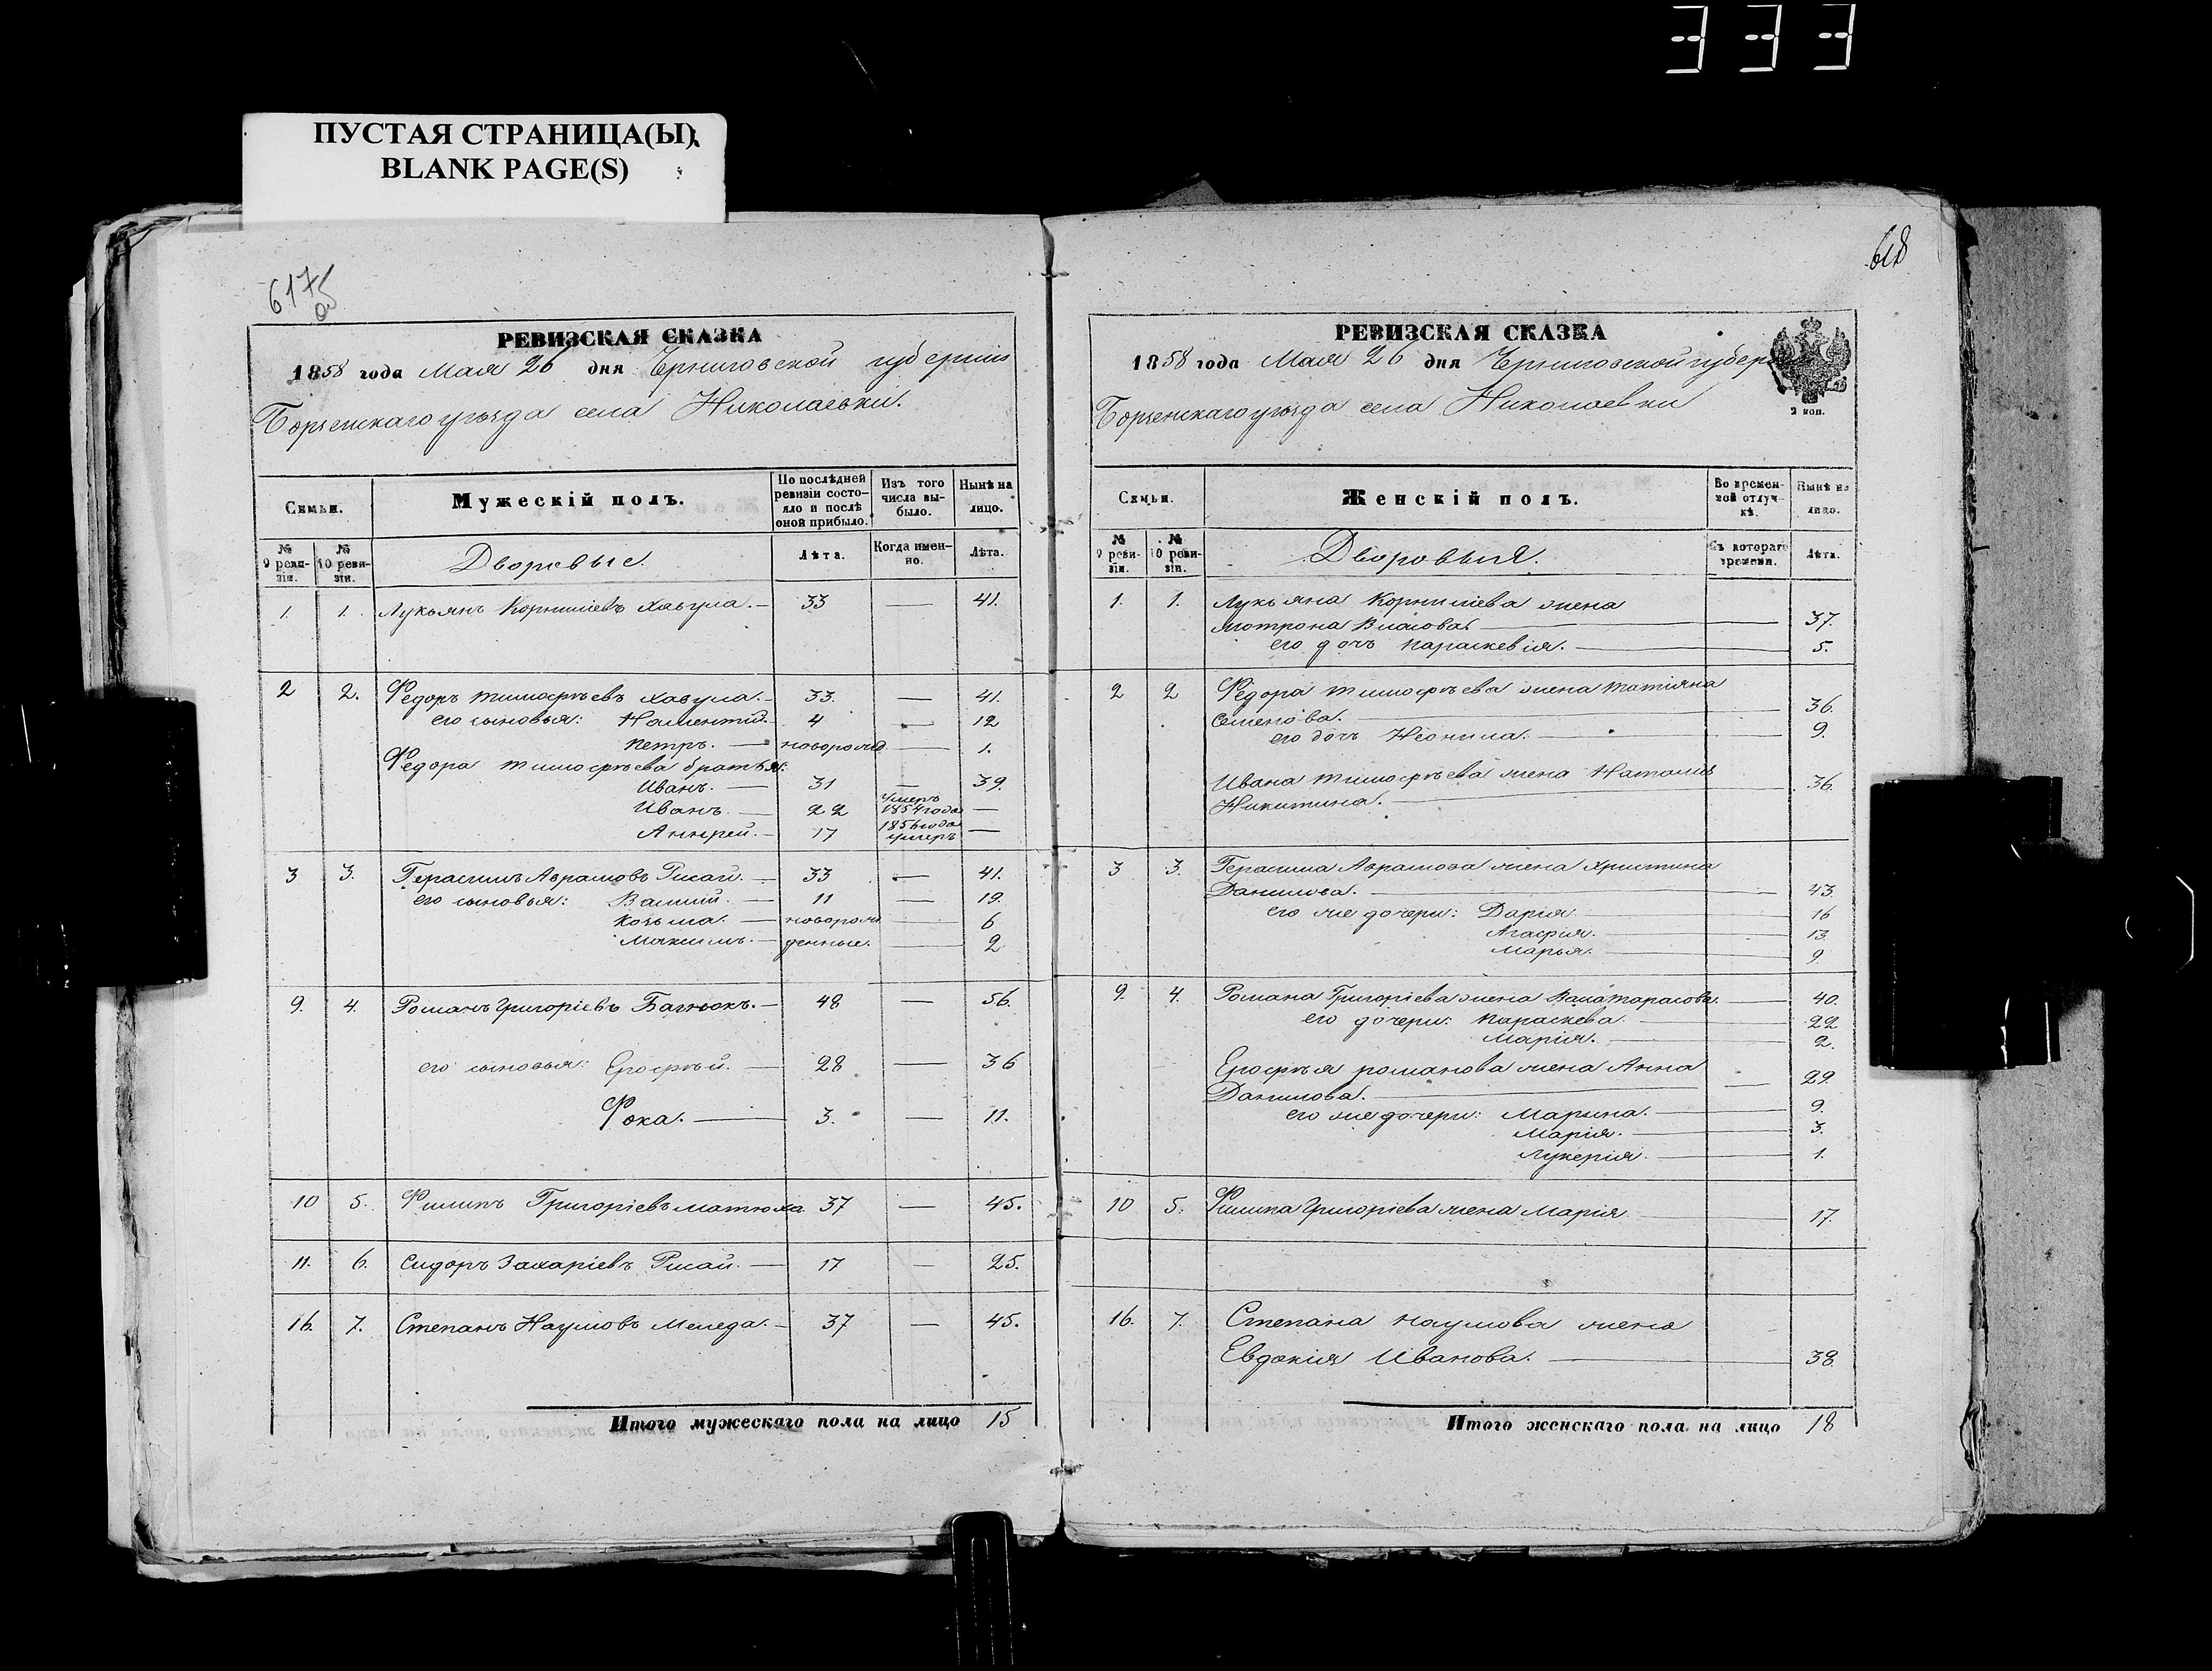 333
ПУСТАЯ СТРАНИЦА(Ы)
BLANK PAGE(S)
617
об
РЕВИЗСКАЯ СКАЗКА
1858 года Мая 26 дня Черниговской губернiи
Борзенскаго уѣзда села Николаевки.
Семьи.
Мужескій полъ.
По послѣдней ревизіи состо-
яло и послѣ оной прибыло.
Изъ того числа вы-
было.
Нынѣ на лицо.
№ 9 реви-
зіи.
№ 10 реви-
зіи.
Дворовые.
Лѣта.
Когда имен-
но.
Лѣта.
1. 1. Лукьянъ Корнилiевъ Хавула. — 33 — 41.
2 2. Федоръ Тимофѣевъ Хавула. — 33. — 41.
его сыновья: Наментiй. 4 — 12
Петръ. — новорожд — 1.
Федора Тимофѣева братья:
Иванъ. — 31 — 39.
Иванъ. — 22 умеръ 1854 года —
Андрей. — 17 1856 года умеръ —
3 3. Герасимъ Аврамовъ — 33 — 41.
его сыновья: Василий. — 11 — 19.
Козьма. — новорож — 6
Максимъ. — денные. — 2
9. 4. Романъ Григорiевъ Багнюкъ. — 48 — 56.
его сыновья: Ерофѣй. — 28 — 36
Фока. — 3. — 11.
10 5. Филипъ Григорiевъ Матюха 37 — 45.
11. 6. Сидоръ Захарiевъ — 17 — 25.
16. 7. Степанъ Наумовъ Меледа. — 37 — 45.
Итого мужескаго пола на лицо 15
618
РЕВИЗСКАЯ СКАЗКА
1858 года Мая 26 дня Черниговской губернiи
Борзенскаго уѣзда села Николаевки
2 коп.
Семьи.
Женскій полъ.
Во времен-
ной отлуч-
кѣ.
Нынѣ на лицо.
№ 9 реви-
зіи.
№ 10 реви-
зіи.
Дворовыя.
Съ котораго времени.
Лѣта.
1. 1. Лукьяна Корнилiева жена
Мотрона Власова. — 37.
его дочь Параскевiя. — 5.
2 2 Федора Тимофѣева жена Татiяна
Семенова. — 36.
его дочь Неонила. — 9.
Ивана Тимофѣева жена Наталiя 36.
Никитина. —
3 3. Герасима Аврамова жена Христина
Данилова. — 43.
его же дочери: Дарiя. — 16
Агафiя. — 13.
Марья. — 9.
9. 4. Романа Григорiева жена Тарасова. — 40.
его дочери: Параскева. — 22
Марiя. — 2.
Ерофѣя Романова жена Анна
Данилова. — 29.
его же дочери: Марина. — 9.
Марiя. — 3.
Лукерiя. — 1.
10 5. Филипа Григорiева жена Марiя — 17.
16. 7. Степана Наумова жена
Евдокiя Иванова. — 38.
Итого женскаго пола на лицо 18